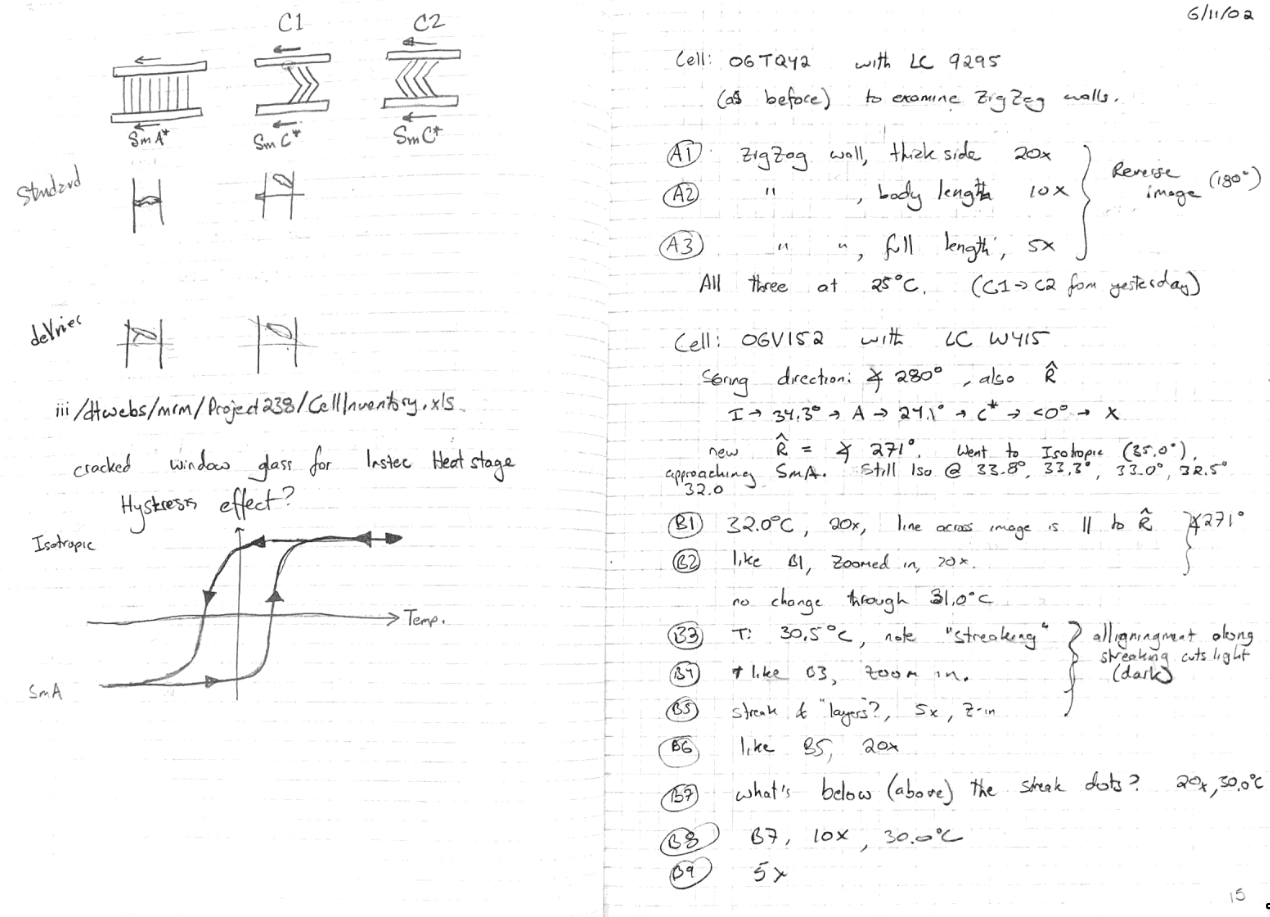 C1 C2
SmA* SmC* SmC*
Standard
deVries
iii/dtwebs/mrm/Project238/CellInventory.xls
cracked window glass for Instec Heat stage
Hysteresis effect?
Isotropic
Temp.
SmA
6/11/02
Cell: OGTQY2 with LC 9295
(as before) to examine ZigZag walls.
A1 ZigZag wall, thick side 20x
A2 " , body length 10x
A3 " " , full length, 5x
Reverse image (180°)
All three at 25°C. (C1→C2 from yesterday)
Cell: OGV152 with LC W415
direction: ∡ 280°, also R̂
I → 34.3° → A → 24.1° → C* → <0° → X
new R̂ = ∡ 271°. Went to Isotropic (35.0°),
approaching SmA. Still Iso @ 33.8°, 33.3°, 33.0°, 32.5°
32.0
B1 32.0°C, 20x, line across image is || to R̂ ∡271°
B2 like B1, Zoomed in, 20x.
no change through 31.0°C
B3 T: 30.5°C, note "streaking"
B4 like B3, zoom in.
B5 streak & "layers?, 5x, Z-in
alligningment along
streaking cuts light
(dark)
B6 like B5, 20x
B7 what's below (above) the streak dots? 20x, 30.0°C
B8 B7, 10x, 30.0°C
B9 5x
15